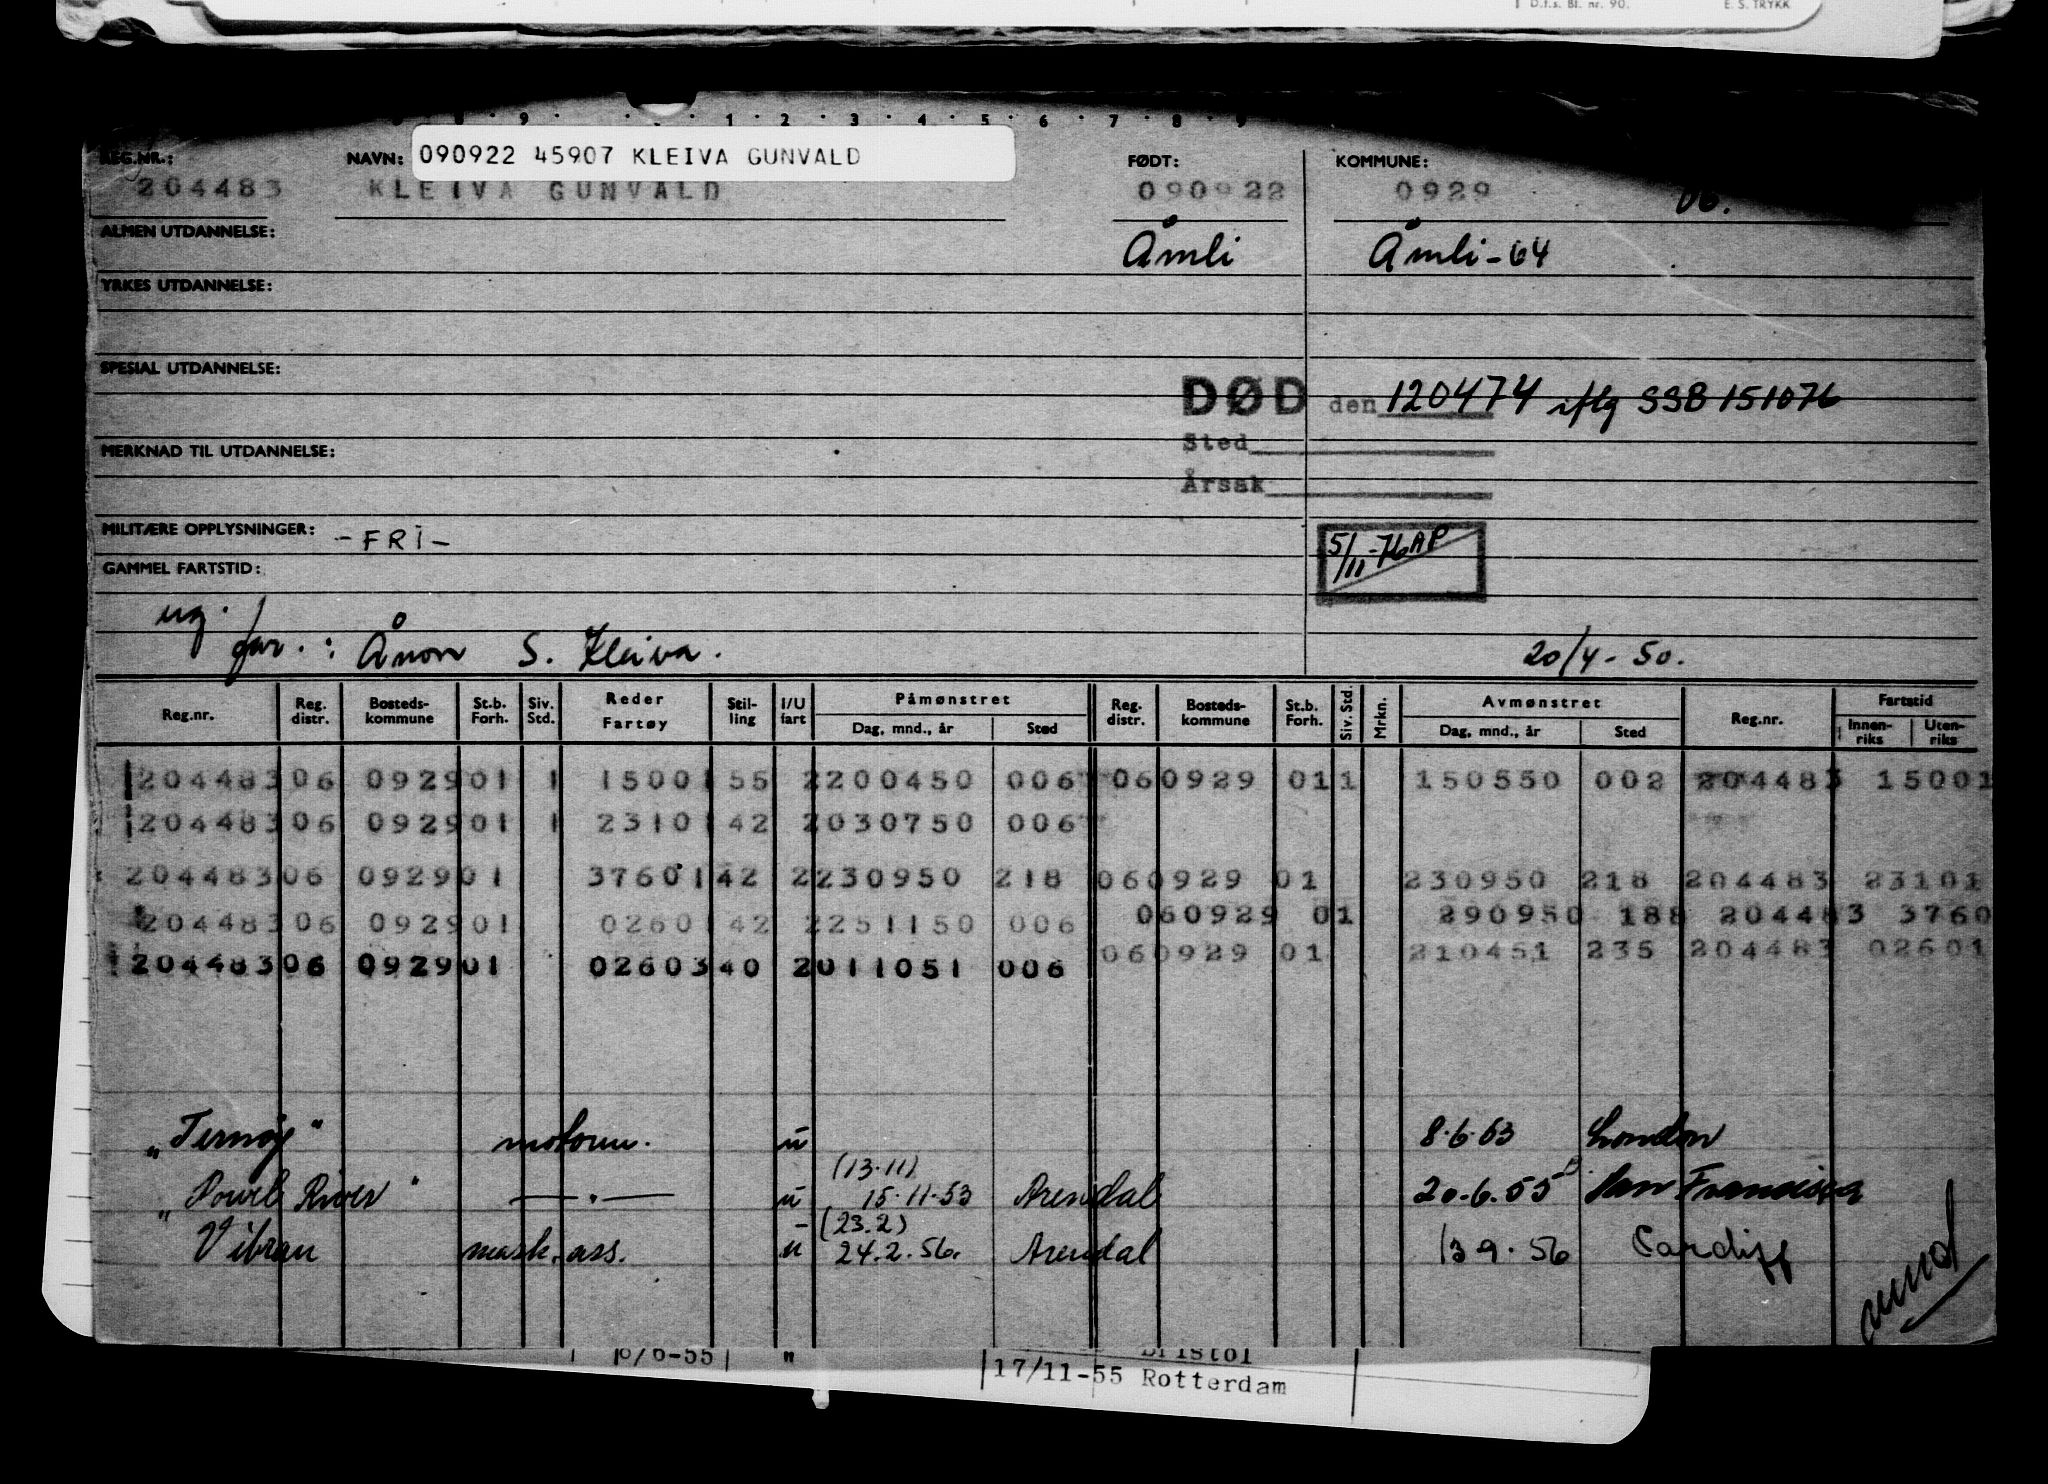 D.f.s. Bl. nr. 90. E. S. TRYKK
9 1 2 3 4 5 6 7 8 9
REG.NR.: NAVN: 090922 45907 KLEIVA GUNVALD FØDT: KOMMUNE:
204483 KLEIVA GUNVALD 090922 0929 06.
ALMEN UTDANNELSE: Åmli Åmli-64
YRKES UTDANNELSE:
SPESIAL UTDANNELSE:
DØD den 120474 iflg SSB 151076
MERKNAD TIL UTDANNELSE: Sted
Årsak
MILITÆRE OPPLYSNINGER: -FRI- 5/11-76 AP
GAMMEL FARTSTID:
ug.
far.: Ånon S. Kleiva. 20/4-50.
Reg.nr. Reg. distr. Bosteds-kommune St.b. Forh. Siv. Std. Reder Fartøy Stil-ling I/U fart Påmønstret Dag, mnd., år Sted Reg. distr. Bosteds-kommune St.b. Forh. Siv. Std. Mrkn. Avmønstret Dag, mnd., år Sted Reg.nr. Fartstid Innen-riks Uten-riks
204483 06 0929 01 1 1500 1 55 2 200450 006 06 0929 01 1 150550 002 204483 15001
204483 06 0929 01 1 2310 1 42 2 030750 006
204483 06 0929 01 3760 1 42 2 230950 218 06 0929 01 230950 218 204483 23101
204483 06 0929 01 0260 1 42 2 251150 006 06 0929 01 290950 188 204483 3760
204483 06 0929 01 0260 3 40 2 011051 006 06 0929 01 210451 235 204483 02601
"Ternøy" motorm. u 8.6.63 London
(13.11)
River" —"— u 15.11.53 Arendal 20.6.55 San Francisco
(23.2)
Vibran mask.ass. u 24.2.56. Arendal 13 9.56 Cardiff
6/6-55 " Bristol
17/11-55 Rotterdam